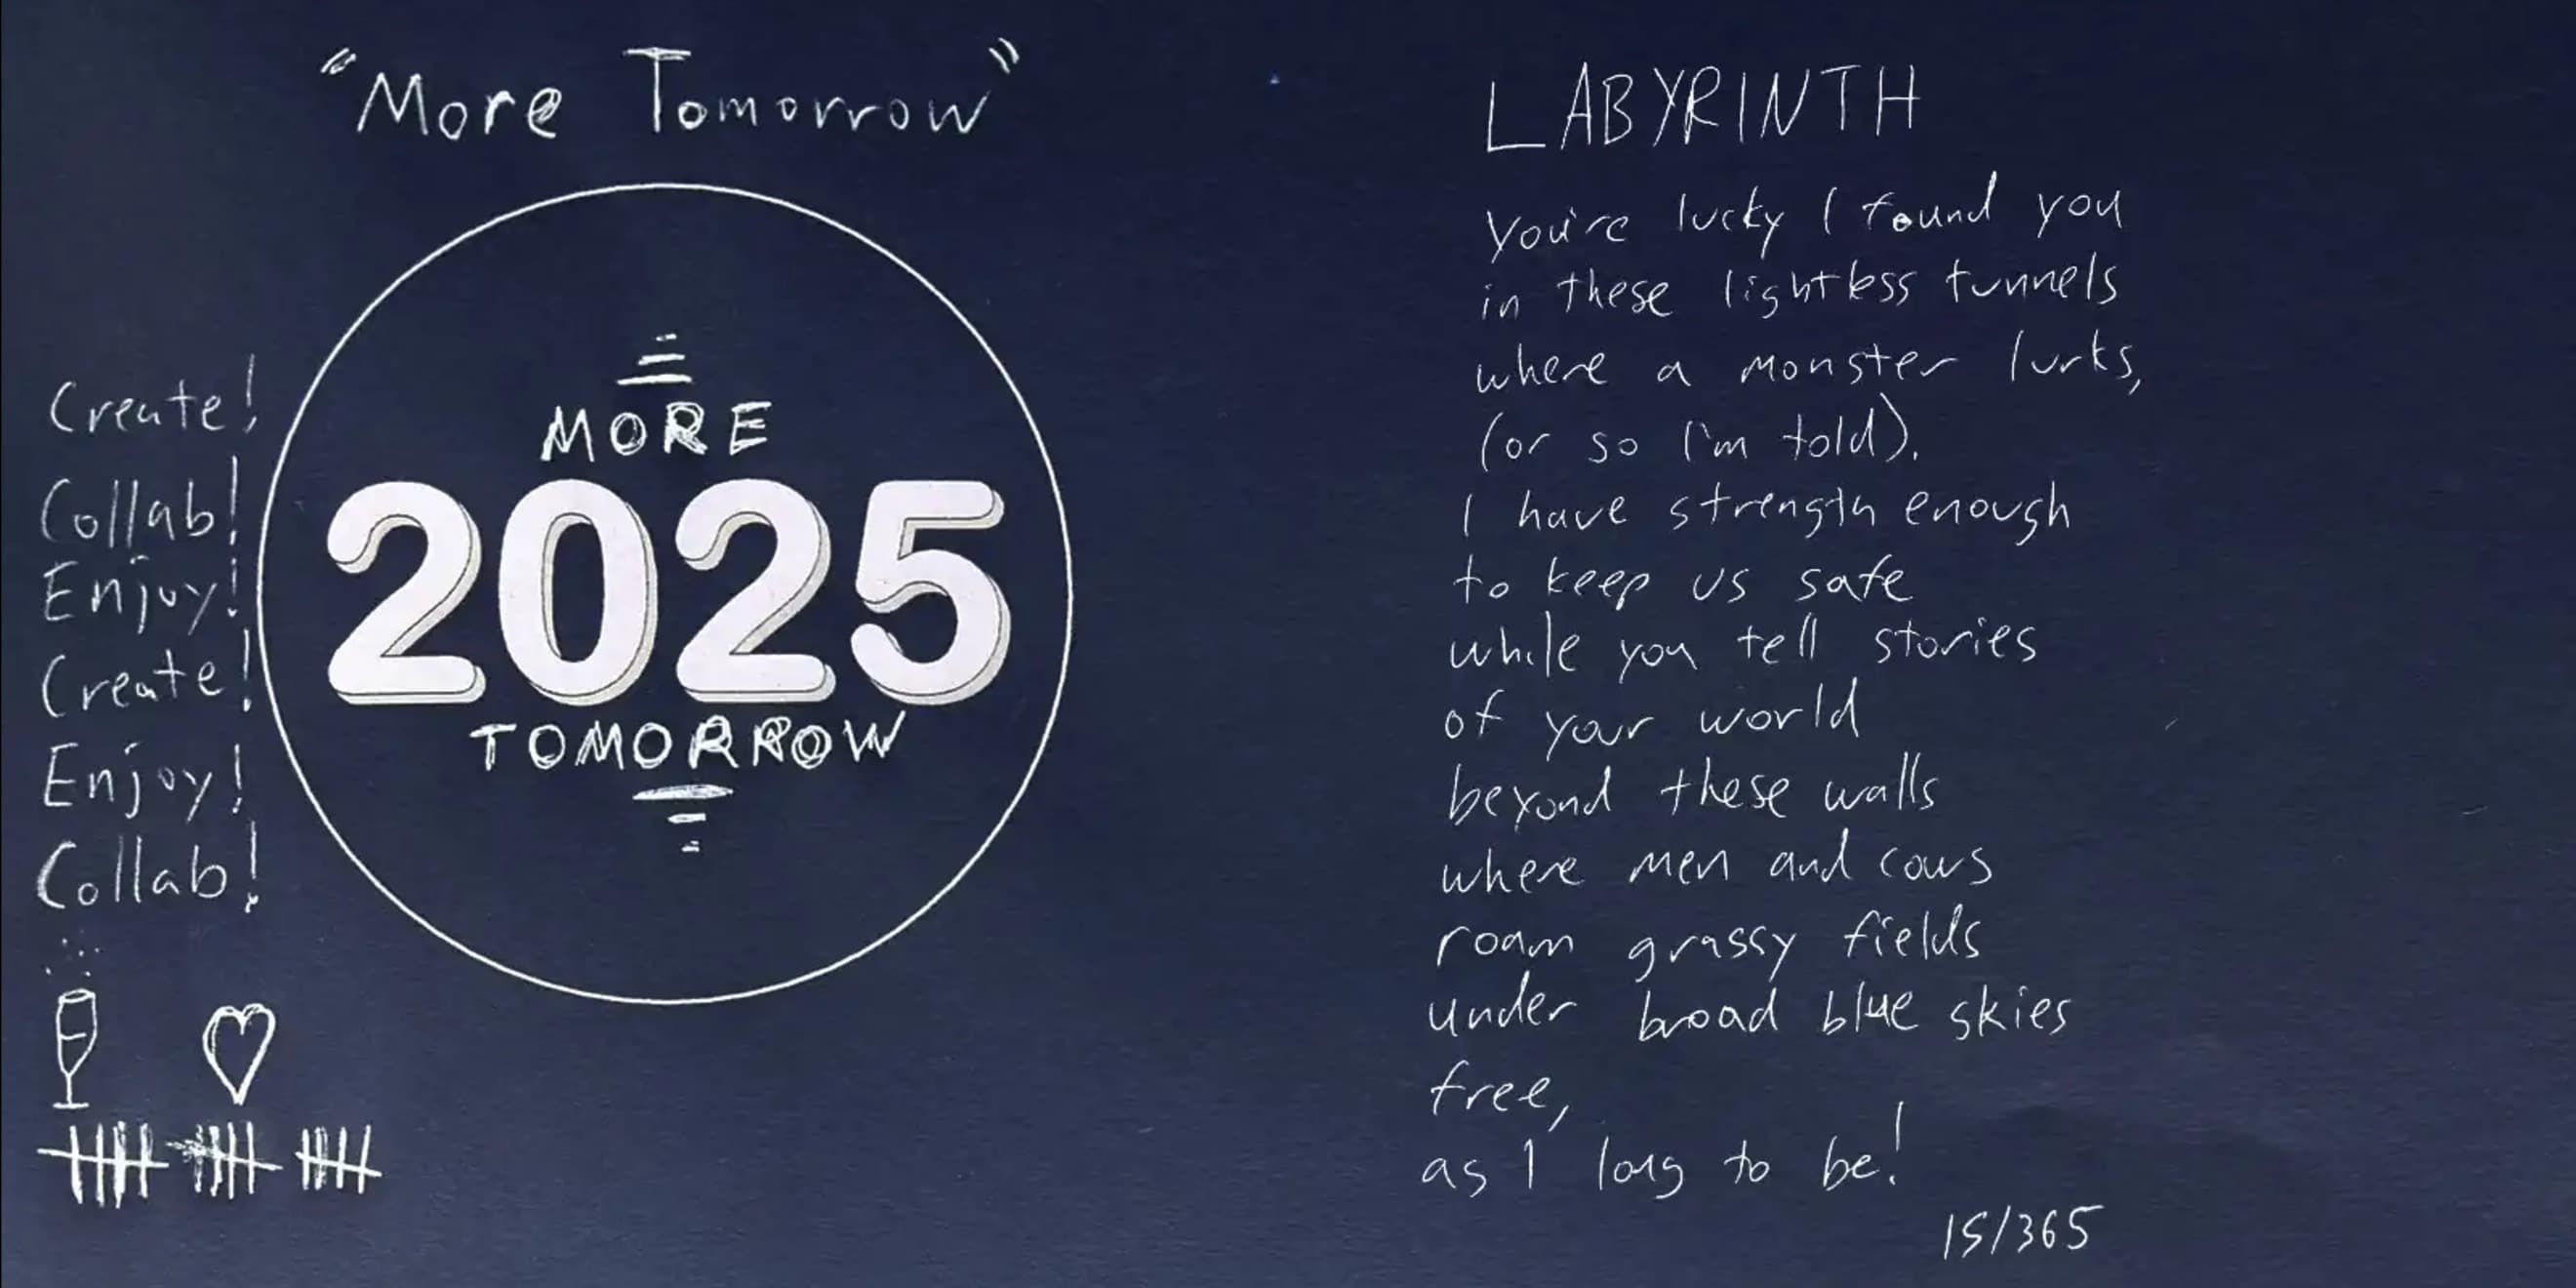 "More Tomorrow"
Create!
Collab!
Enjoy!
Create!
Enjoy!
Collab!
MORE
2025
TOMORROW
LABYRINTH
You're lucky I found you
in these lightless tunnels
where a monster lurks,
(or so I'm told).
I have strength enough
to keep us safe
while you tell stories
of your world
beyond these walls
where men and cows
roam grassy fields
under broad blue skies
free,
as I long to be!
15/365